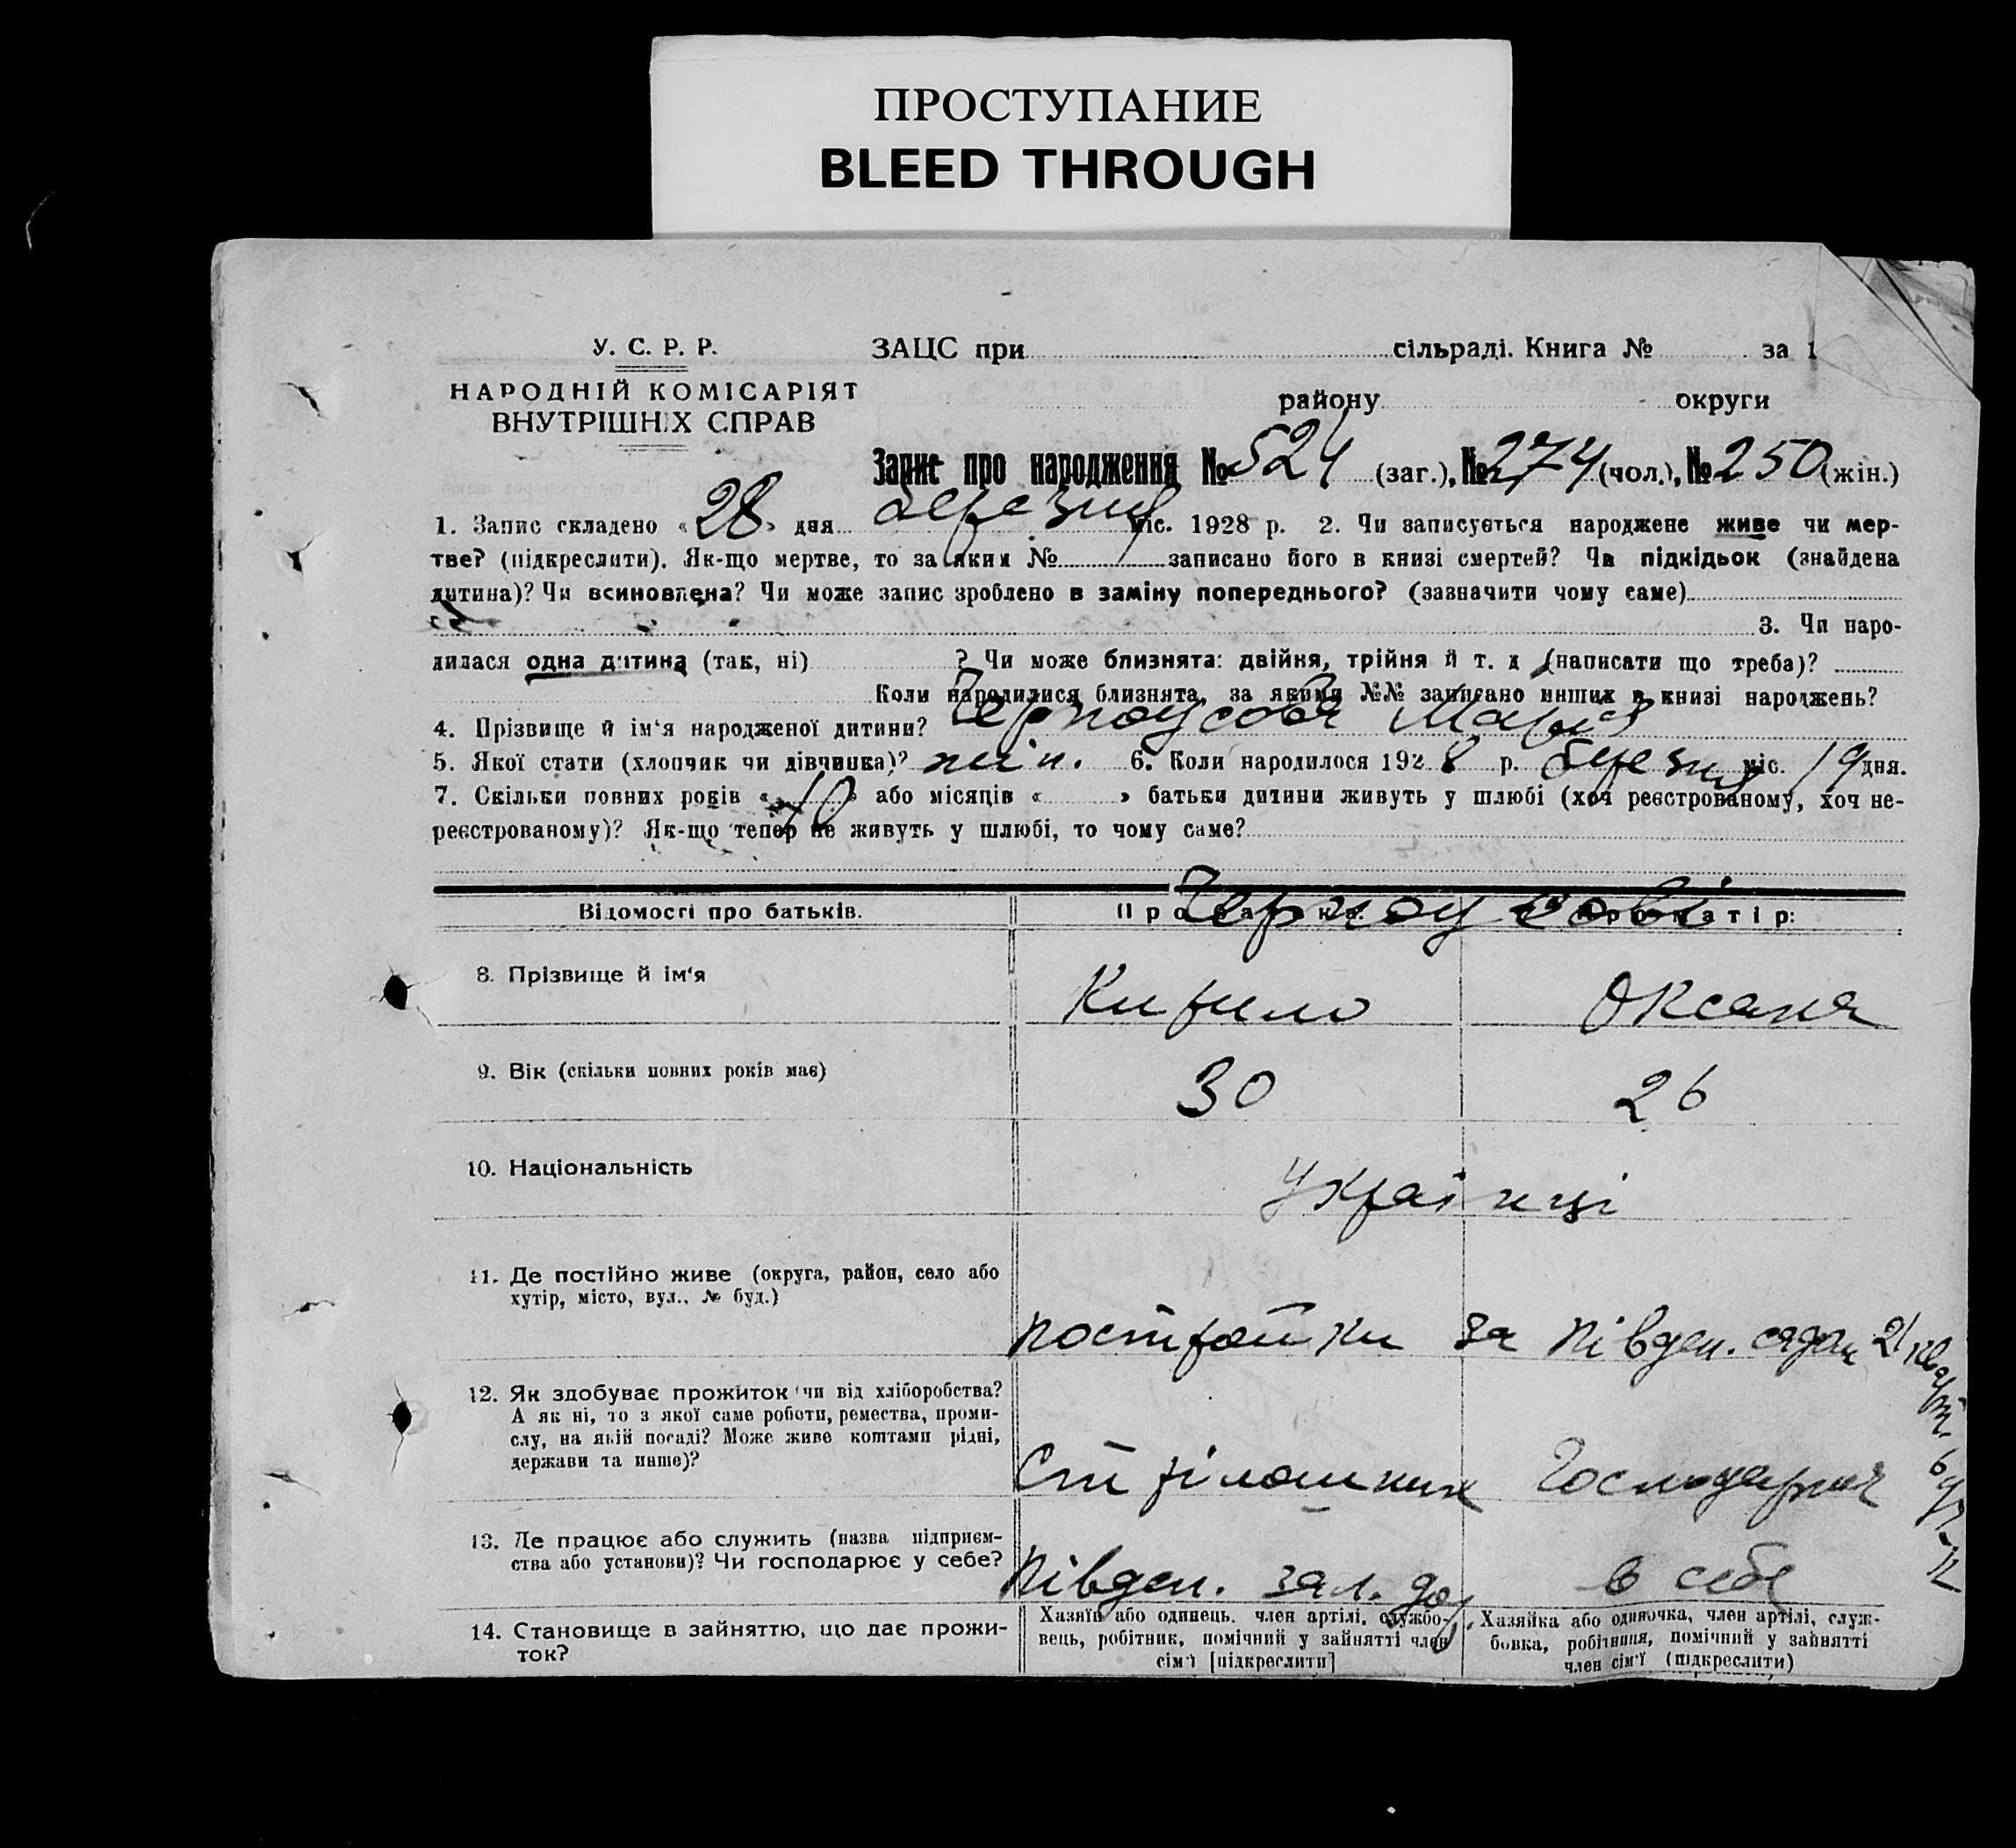 ПРОСТУПАНИЕ
BLEED THROUGH
У. С. Р. Р.
НАРОДНІЙ КОМІСАРІЯТ
ВНУТРІШНІХ СПРАВ
ЗАЦС при сільраді. Книга № за 1
району округи
Запис про народження № 524 (заг.), № 274 (чол.), № 250 (жін.)
1. Запис складено «28» дня березня міс. 1928 р. 2. Чи записується народжене живе чи мер-
тве? (підкреслити). Як-що мертве, то за яким № записано його в книзі смертей? Чи підкідьок (знайдена
дитина)? Чи всиновлена? Чи може запис зроблено в заміну попереднього? (зазначити чому саме)
3. Чи наро-
дилася одна дитина (так, ні) ? Чи може близнята: двійня, трійня й т. д (написати що треба)?
Коли народилися близнята, за якими №№ записано инших в книзі народжень?
4. Прізвище й ім'я народженої дитини? Черноусова Марія
5. Якої стати (хлопчик чи дівчинка)? жін. 6. Коли народилося 1928 р. березня міс. 19 дня.
7. Скільки повних років «10» або місяців « » батьки дитини живуть у шлюбі (хоч реєстрованому, хоч не-
реєстрованому)? Як-що тепер не живуть у шлюбі, то чому саме?
Черноусови
Відомості про батьків. Про батька: Про матір:
8. Прізвище й ім'я Кирило Оксана
9. Вік (скільки повних років має) 30 26
10. Національність Українці
11. Де постійно живе (округа, район, село або
хутір, місто, вул., № буд.)
постройки за Півден. 21 кварт.
12. Як здобуває прожиток чи від хліборобства?
А як ні, то з якої саме роботи, ремества, проми-
слу, на якій посаді? Може живе коштами рідні,
держави та инше)?
Стрілошник Господарює
13. Де працює або служить (назва підприєм-
ства або установи)? Чи господарює у себе?
Півден. зал. дор. в себе
14. Становище в зайняттю, що дає прожи-
ток?
Хазяїн або одинець. член артілі, службо-
вець, робітник, помічний у зайнятті член
сім'ї [підкреслити]
Хазяйка або одиночка, член артілі, служ-
бовка, робітниця, помічний у зайнятті
член сім'ї (підкреслити)